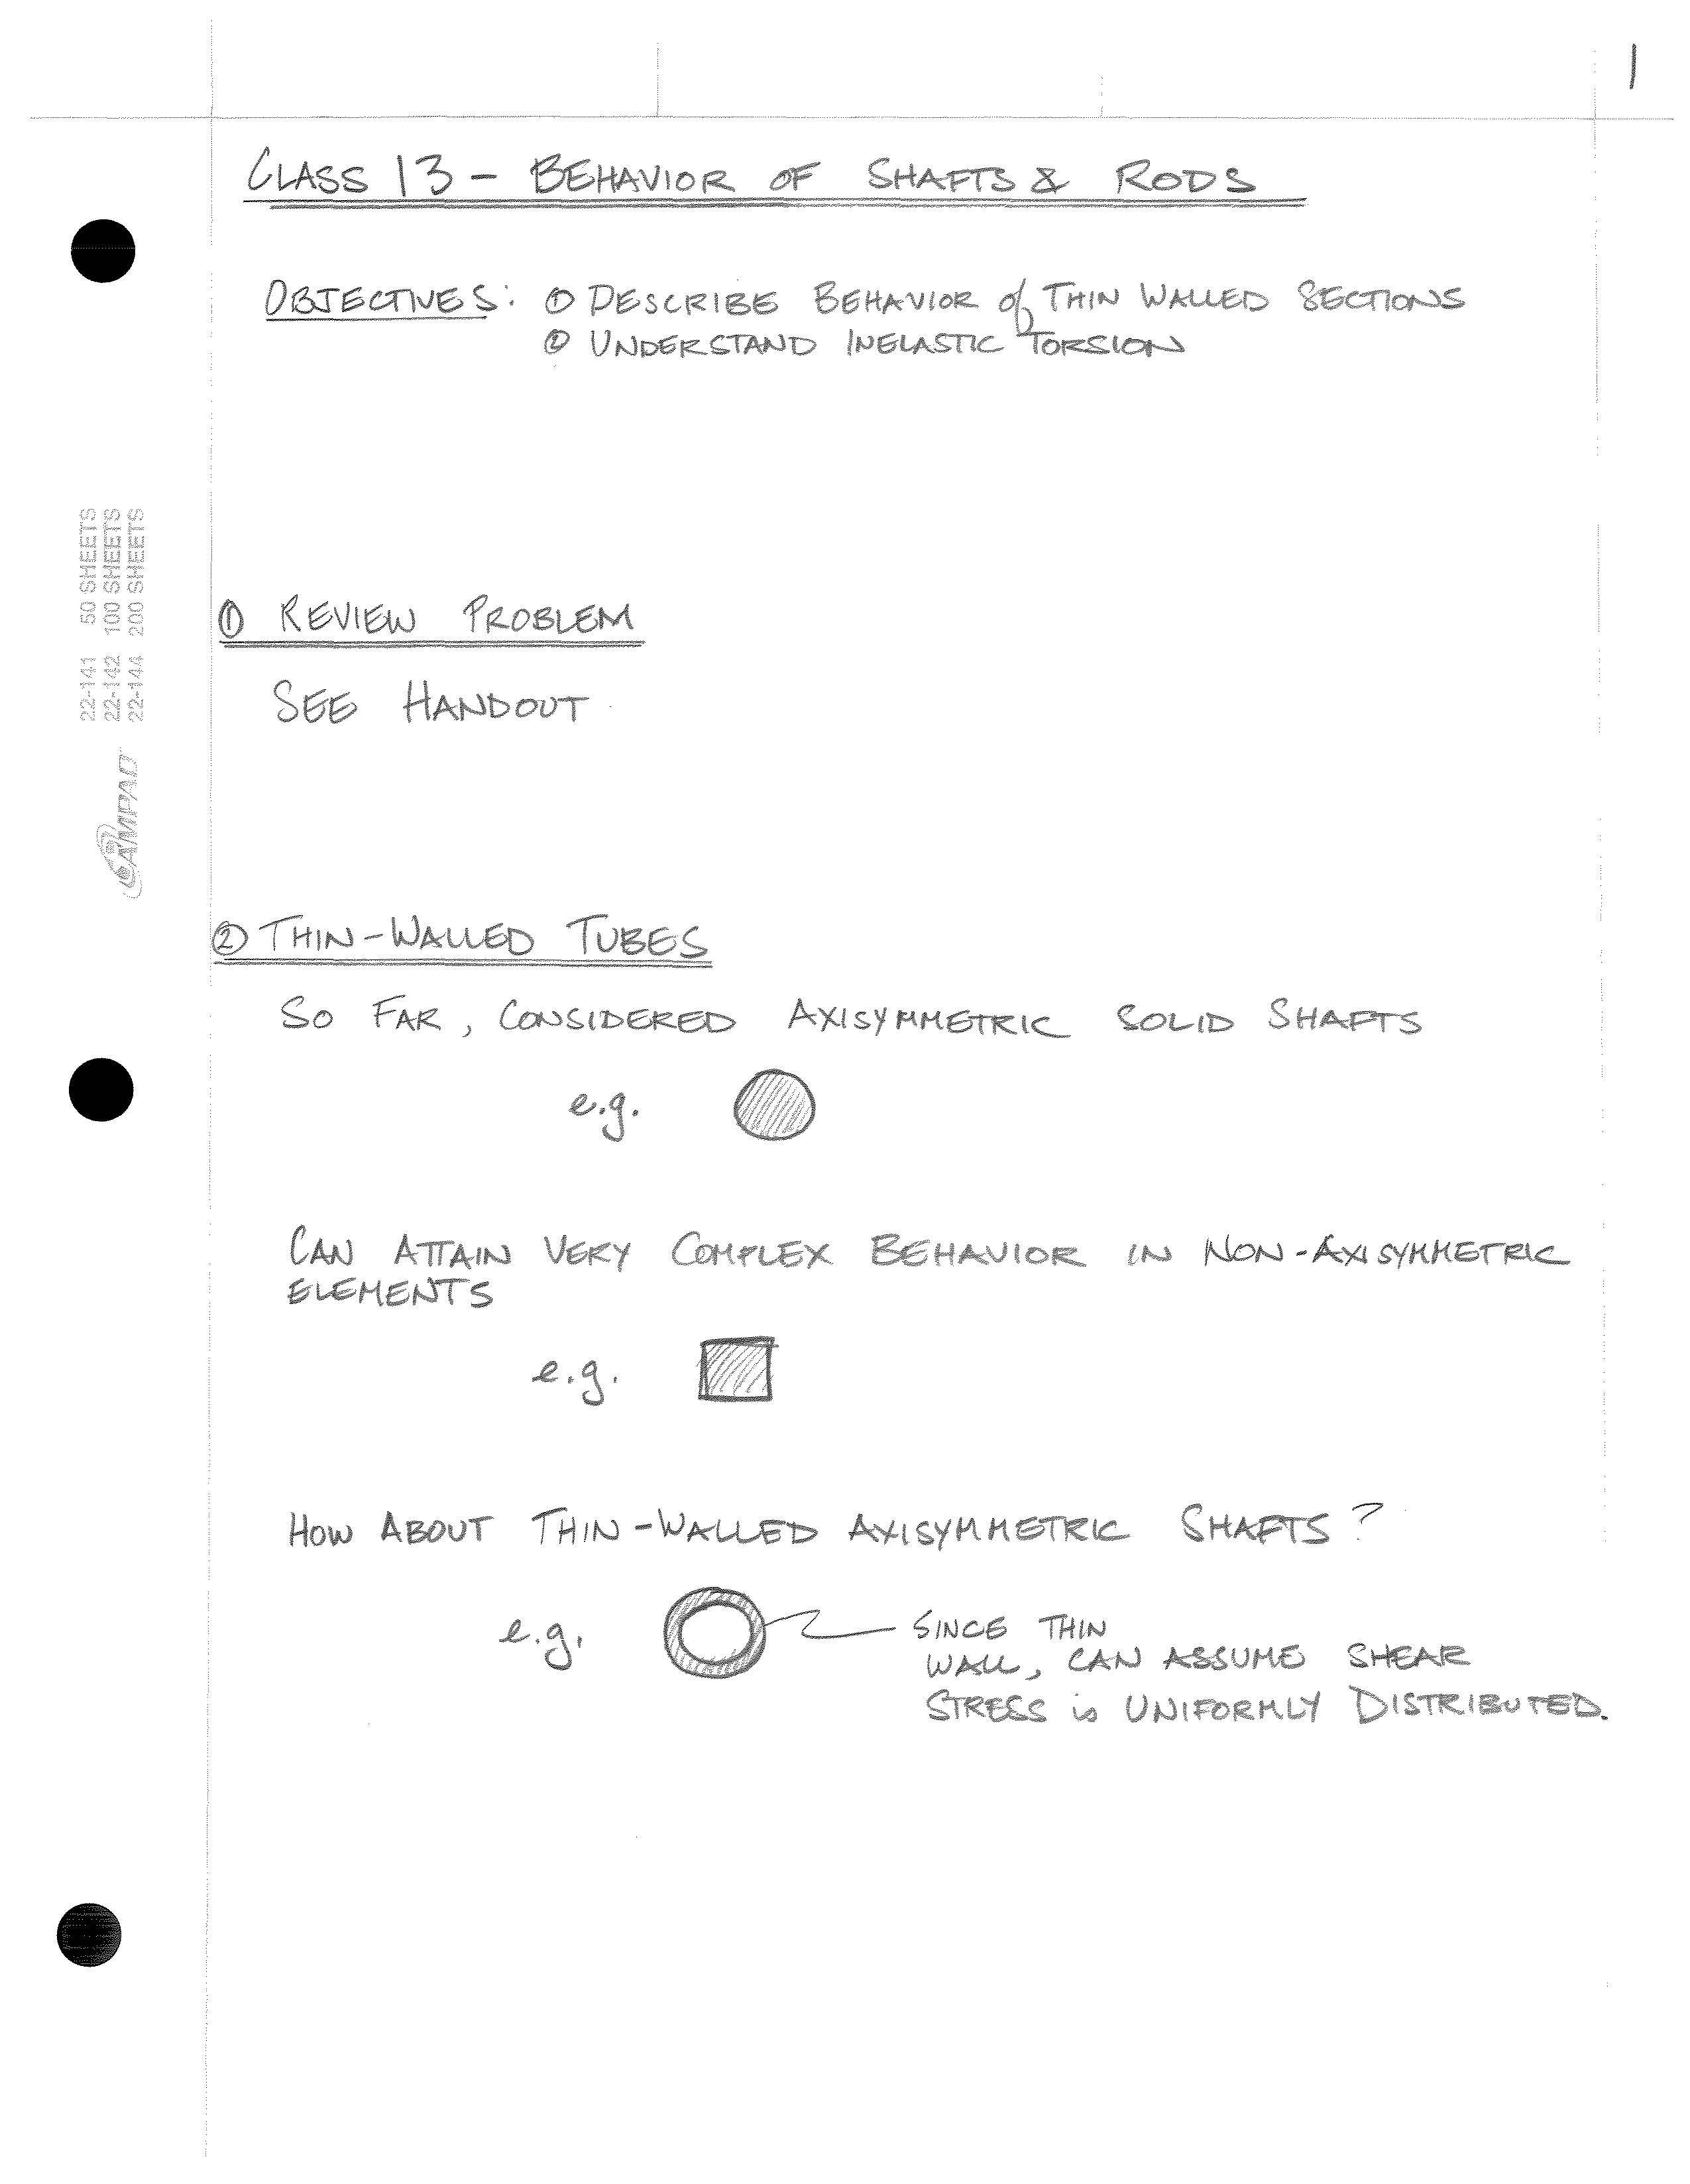 1
CLASS 13 - BEHAVIOR OF SHAFTS & RODS
OBJECTIVES: ① DESCRIBE BEHAVIOR of THIN WALLED SECTIONS
② UNDERSTAND INELASTIC TORSION
22-141 50 SHEETS
22-142 100 SHEETS
22-144 200 SHEETS
AMPAD
① REVIEW PROBLEM
SEE HANDOUT
② THIN-WALLED TUBES
SO FAR, CONSIDERED AXISYMMETRIC SOLID SHAFTS
e.g.
CAN ATTAIN VERY COMPLEX BEHAVIOR IN NON-AXISYMMETRIC
ELEMENTS
e.g.
HOW ABOUT THIN-WALLED AXISYMMETRIC SHAFTS?
e.g.
SINCE THIN
WALL, CAN ASSUME SHEAR
STRESS is UNIFORMLY DISTRIBUTED.